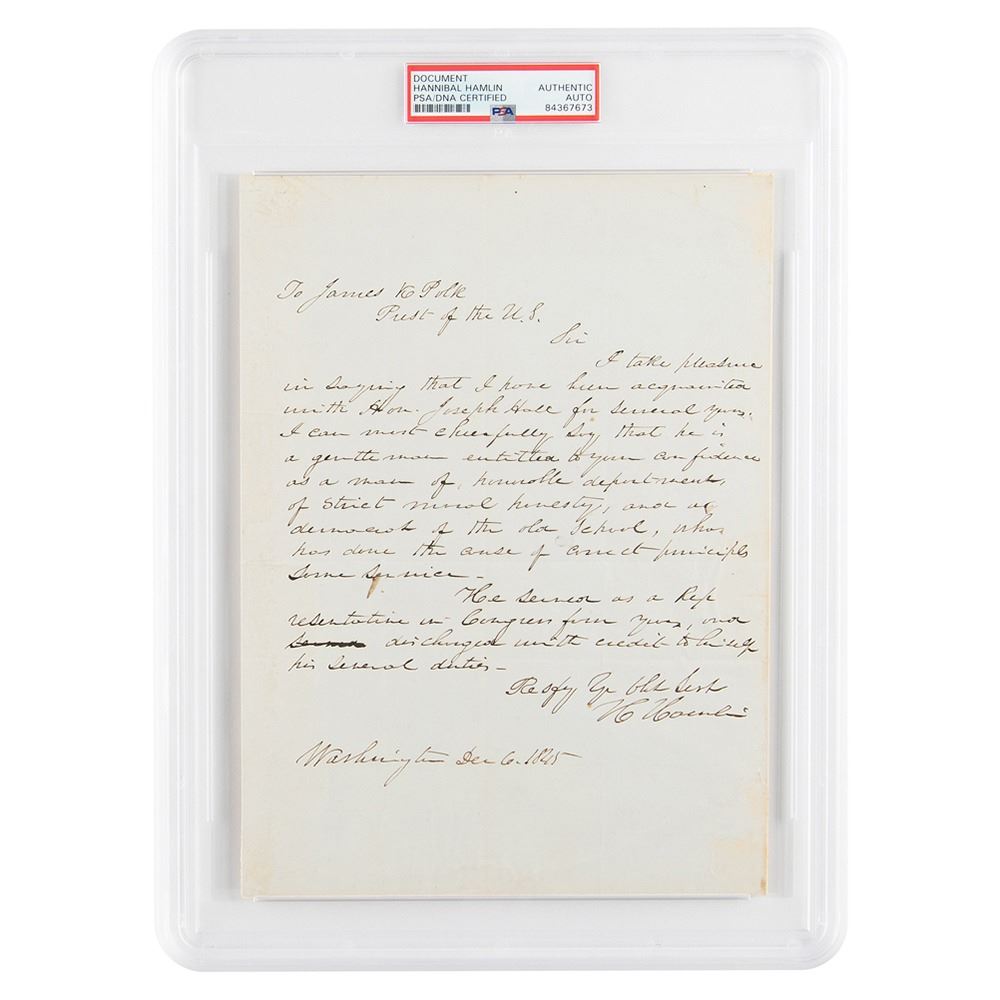 DOCUMENT
HANNIBAL HAMLIN
PSA/DNA CERTIFIED
AUTHENTIC
AUTO
84367673
PSA
To James K Polk
Prest of the U.S.
Sir
I take pleasure
in saying that I have been acquainted
with Hon. Joseph Hall for several years.
I can most cheerfully say that he is
a gentleman entitled to your confidence
as a man of, honorable deportment,
of strict moral honesty, and a
democrat of the old School, who
has done the cause of correct principles
some service -
He served as a Rep
resentative in Congress four years, and
discharged with credit to himself
his several duties -
Respy Yr Obt Sert
H Hamlin
Washington Dec 6. 1845